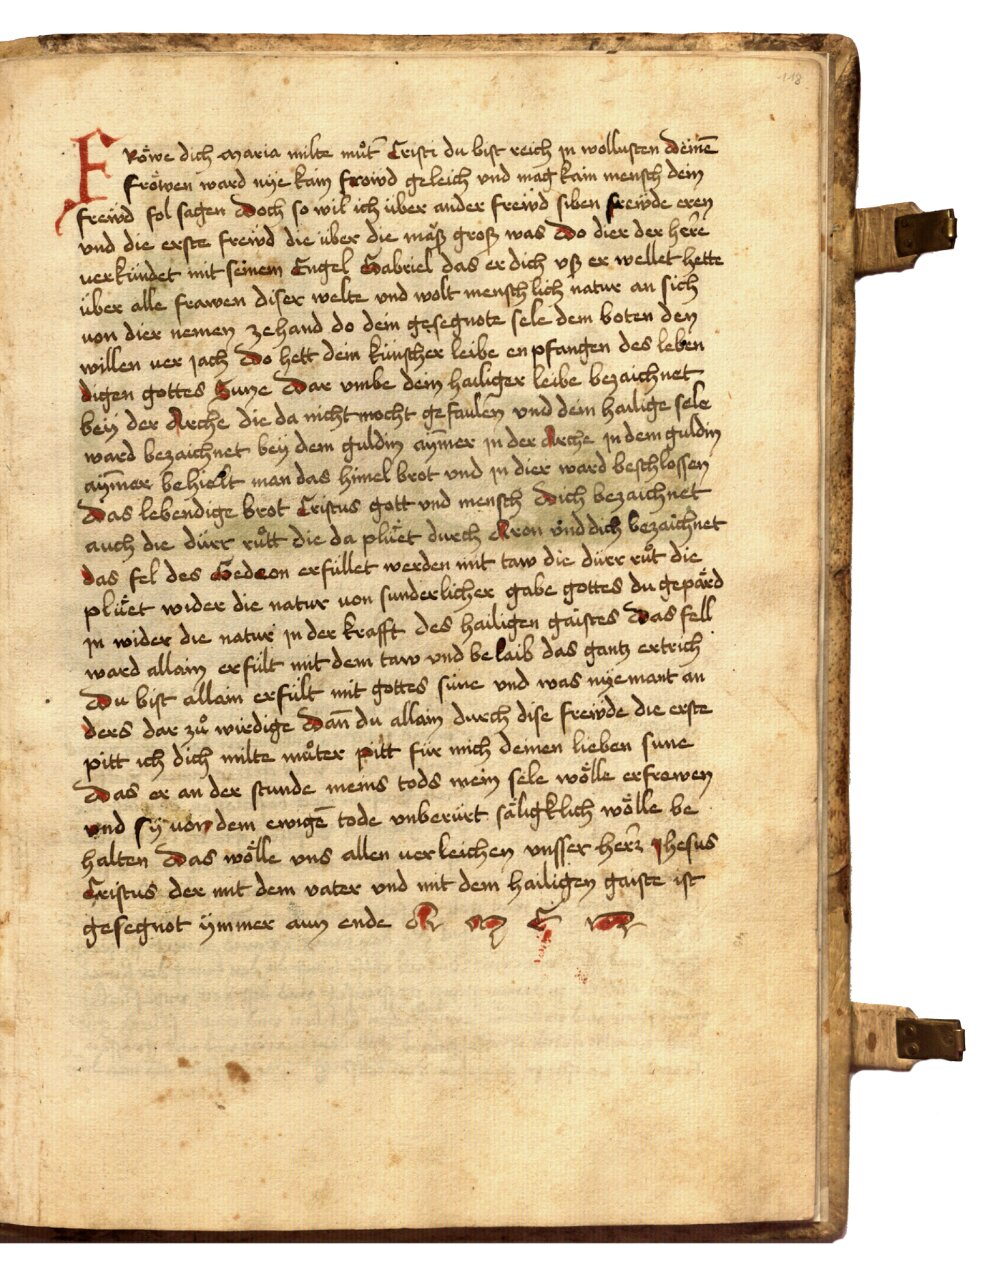 113
Fröwe dich Maria milte muͦt̄ Cristi du bist reich in wollusten Deinē
fröwen ward nÿe kain frowd geleich vnd mag kain mensch dein
freẅd fol sagen Doch so wil ich über ander freẅd siben freẅde eren
vnd die erste freẅd die über die mäß groß was Do dier der herre
verkündet mit seinem Engel Gabriel das er dich vß er wellet hette
über alle frawen diser welte vnd wolt menschlich natur an sich
von dier nemen zehand do dein gesegnote sele dem boten den
willen ver jach Do hett dein künscher leibe enpfangen des leben
digen gottes Sune Dar vmbe dein hailiger leibe bezaichnet
beÿ der Arche die da nicht mocht gefaulen vnd dein hailige sele
ward bezaichnet beÿ dem guldin aÿm̄er in der Arche in dem guldin
aÿm̄er behielt man das himel brot vnd in dier ward beschlossen
Das lebendige brot Cristus gott vnd mensch Dich bezaichnet
auch die dürr ruͦtt die da plüet durch Aron vnd dich bezaichnet
das fel des Gedeon erfüllet werden mit taw die dürr ruͦt die
plüet wider die natur von sunderlicher gabe gottes du gepärd
in wider die natur in der krafft des hailigen gaistes Das fell
ward allain erfült mit dem taw vnd belaib das gantz ertrich
Du bist allain erfült mit gottes süne vnd was nÿemant an
ders dar zuͦ wirdige Dan̄ du allain durch dise freẅde die erste
pitt ich dich milte muͦter pitt für mich deinen lieben sune
Das er an der stunde meins tods mein sele wölle erfrowen
vnd sÿ von dem ewigē tode vnberürt säligklich wölle be
halten Das wölle vns allen verleichen vnsser herr Jhesus
Cristus der mit dem vater vnd mit dem hailigen gaiste ist
gesegnot ÿmmer aun ende A m E n